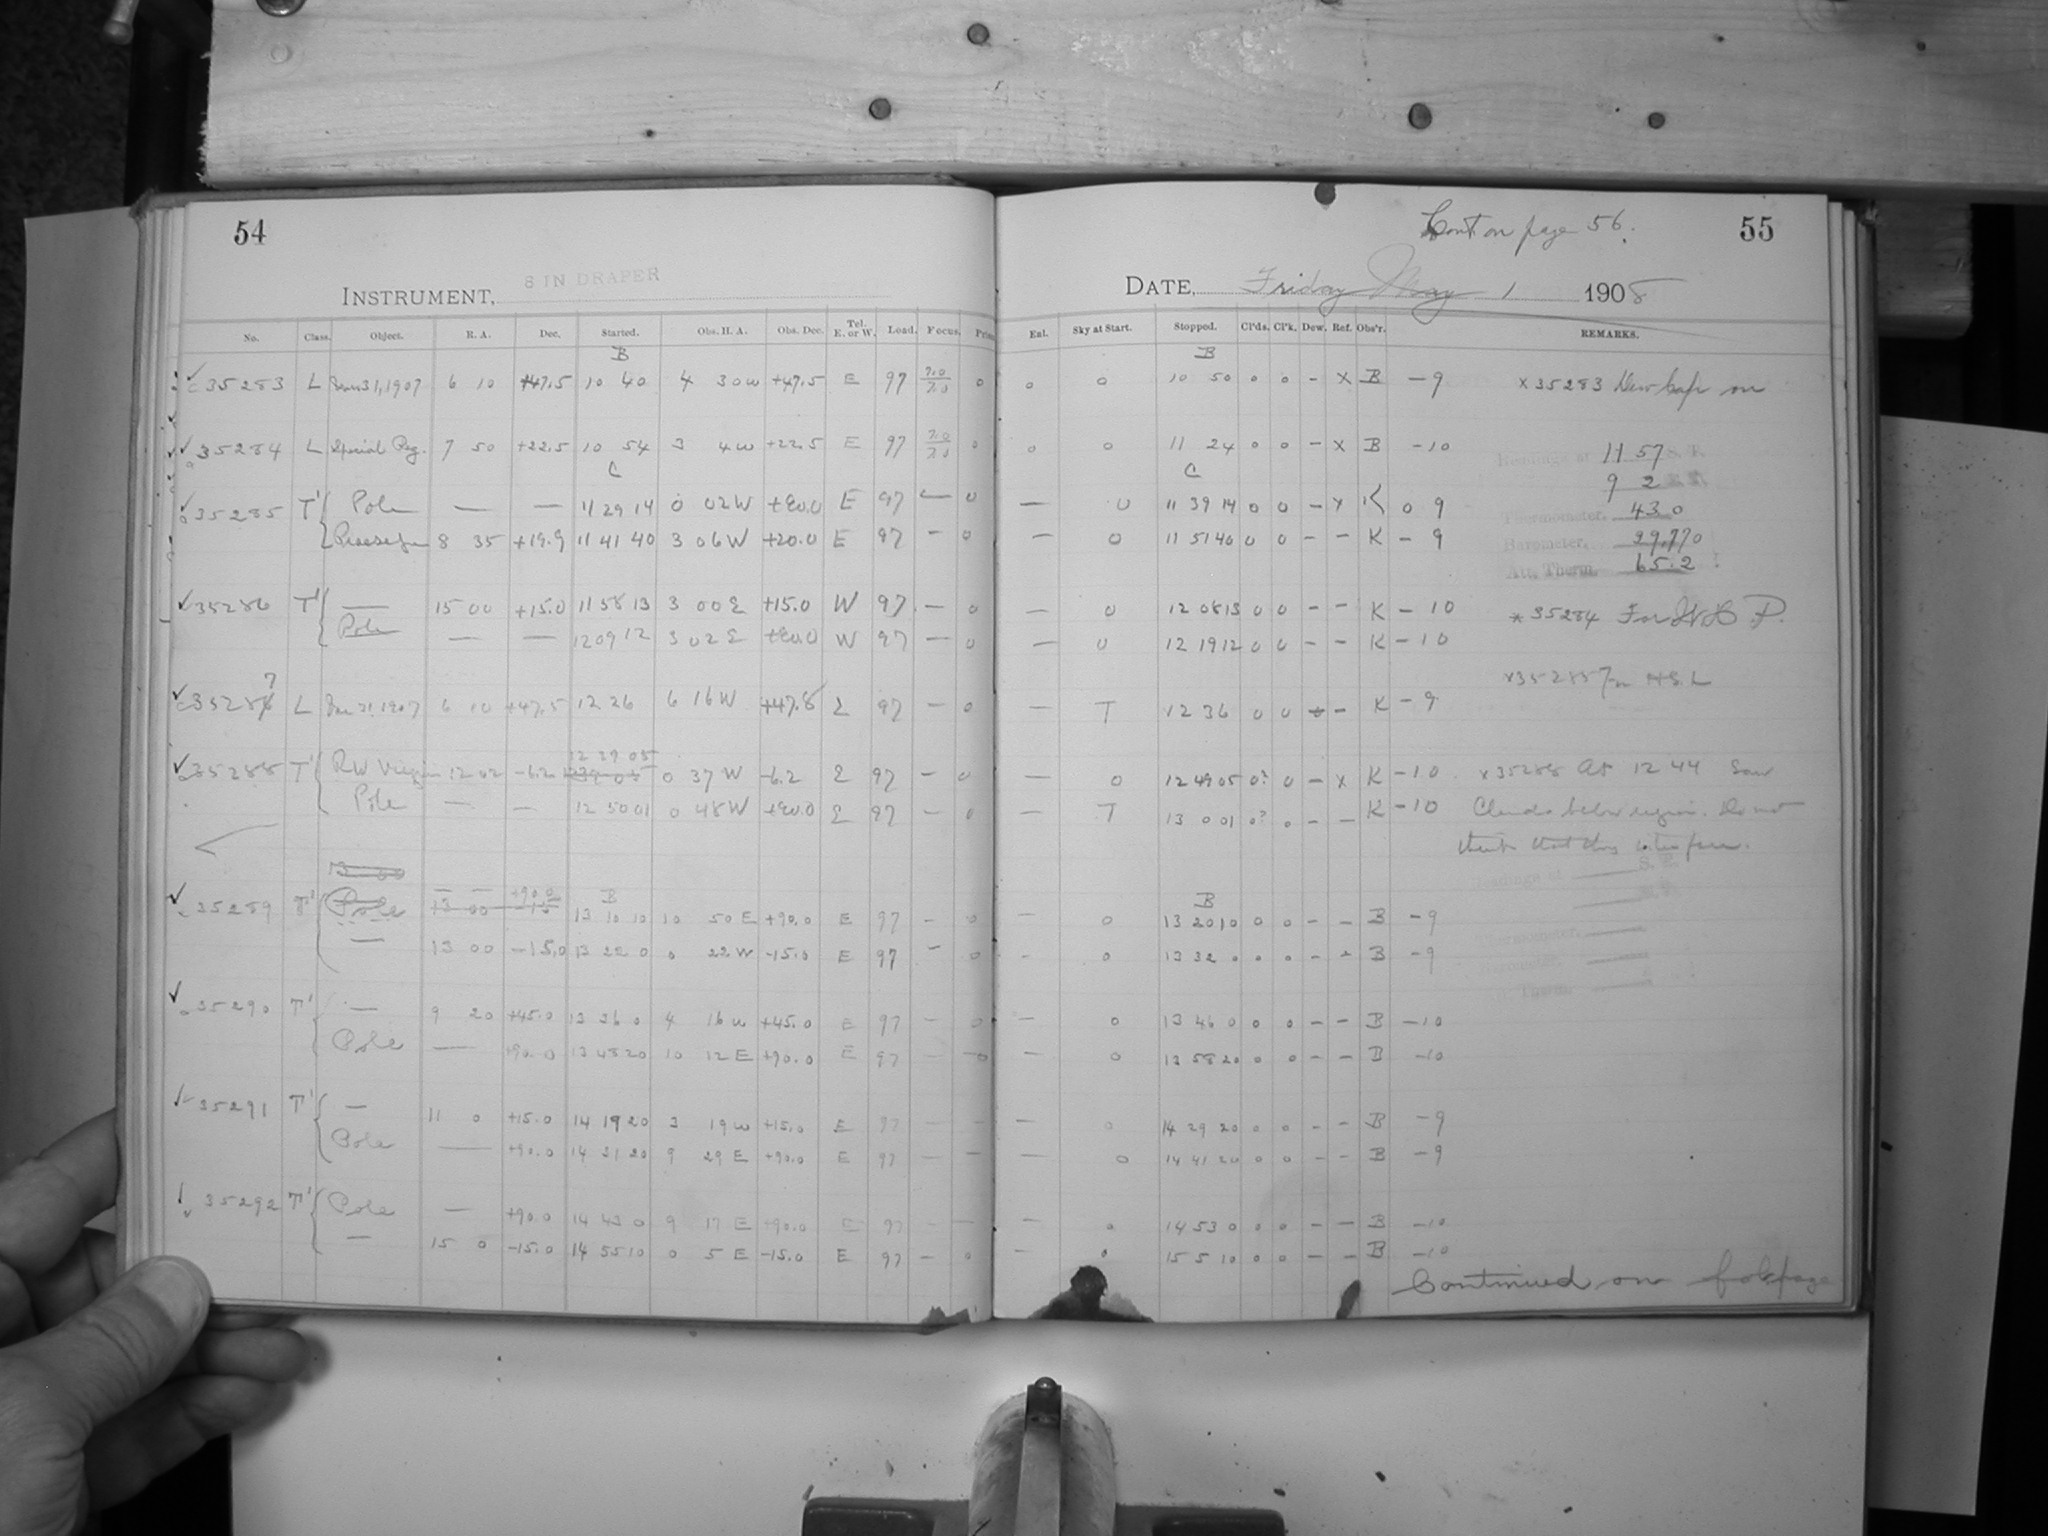 54
8 IN DRAPER
INSTRUMENT,
No. Class. Object. R. A. Dec. Started. Obs. H. A. Obs. Dec. Tel. E. or W. Load. Focus.
B
35283 L 31, 1907 6 10 +47.5 10 40 4 30 W +47.5 E 97 0
35284 L Special Reg. 7 50 +22.5 10 54 3 4 W +22.5 E 97 0
C
35285 T' Pole — — 11 29 14 0 02 W +90.0 E 97 — 0
8 35 +19.9 11 41 40 3 06 W +20.0 E 97 — 0
35286 T' — 15 00 +15.0 11 58 13 3 00 E +15.0 W 97 — 0
Pole — — 12 09 12 3 02 E +90.0 W 97 — 0
35287 L 31, 1907 6 10 +47.5 12 26 6 16 W +47.8 E 97 — 0
12 29 05
35288 T' RW Virgin 12 02 -6.2 0 37 W -6.2 E 97 — 0
Pole — — 12 50 01 0 48 W +90.0 E 97 — 0
— — +90.0 B
35289 T' Pole 13 10 10 10 50 E +90.0 E 97 — 0
— 13 00 -15.0 13 22 0 0 22 W -15.0 E 97 — 0
35290 T' — 9 20 +45.0 13 36 0 4 16 W +45.0 E 97 — 0
Pole — +90.0 13 48 20 10 12 E +90.0 E 97 — 0
35291 T' — 11 0 +15.0 14 19 20 3 19 W +15.0 E 97 — —
Pole — +90.0 14 31 20 9 29 E +90.0 E 97 — —
35292 T' Pole — +90.0 14 43 0 9 17 E +90.0 E 97 — —
— 15 0 -15.0 14 55 10 0 5 E -15.0 E 97 — 0
Cont on page 56.
55
DATE, Friday May 1 1908
Enl. Sky at Start. Stopped. Cl'ds. Cl'k. Dew. Ref. Obs'r. REMARKS.
B
0 0 10 50 0 0 - X B -9 x 35283 New on
0 0 11 24 0 0 - X B -10
Readings at 11 57 S. T.
C
9 2
— 0 11 39 14 0 0 - x K 0 9
Thermometer, 43.0
— 0 11 51 40 0 0 - - K - 9
Barometer, 29.770
Att. Therm. 65.2
— 0 12 08 13 0 0 - - K - 10 * 35284 For
— 0 12 19 12 0 0 - - K - 10
x 35285 For H.S.L
— T 12 36 0 0 - K - 9
— 0 12 49 05 0? 0 - x K - 10 x 35288 At 12 44 Saw
— T 13 0 01 0? 0 - - K - 10 Clouds below region. Do not
think that they interfere.
Readings at S. T.
B
— 0 13 20 10 0 0 - - B - 9
Thermometer,
- 0 13 32 0 0 0 - - B - 9
Barometer,
Att. Therm.
— 0 13 46 0 0 0 - - B - 10
— 0 13 58 20 0 0 - - B - 10
— 0 14 29 20 0 0 - - B - 9
— 0 14 41 20 0 0 - - B - 9
— 0 14 53 0 0 0 - - B - 10
— 0 15 5 10 0 0 - - B - 10
Continued on page